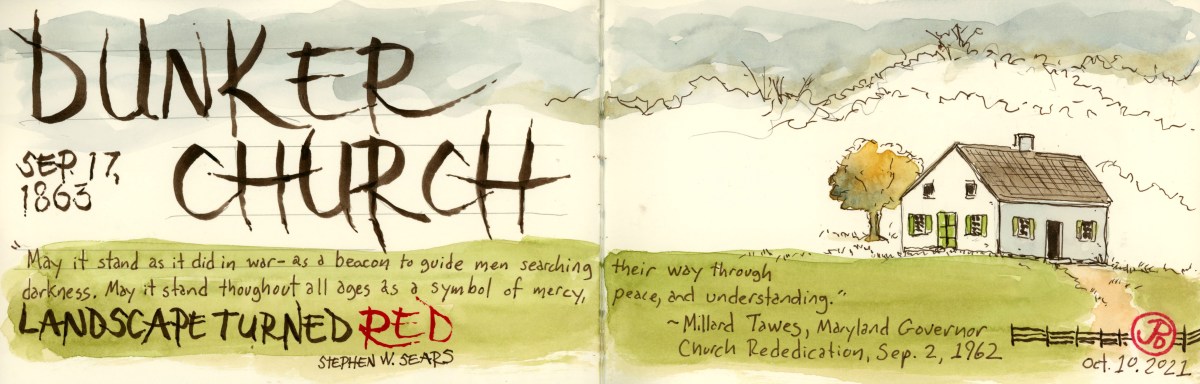 DUNKER
CHURCH
SEP. 17,
1863
"May it stand as it did in war- as a beacon to guide men searching their way through
darkness. May it stand thoughout all ages as a symbol of mercy, peace, and understanding."
~Millard Tawes, Maryland Governor
Church Rededication, Sep. 2, 1962
LANDSCAPE TURNED RED
STEPHEN W. SEARS
Oct. 10. 2021